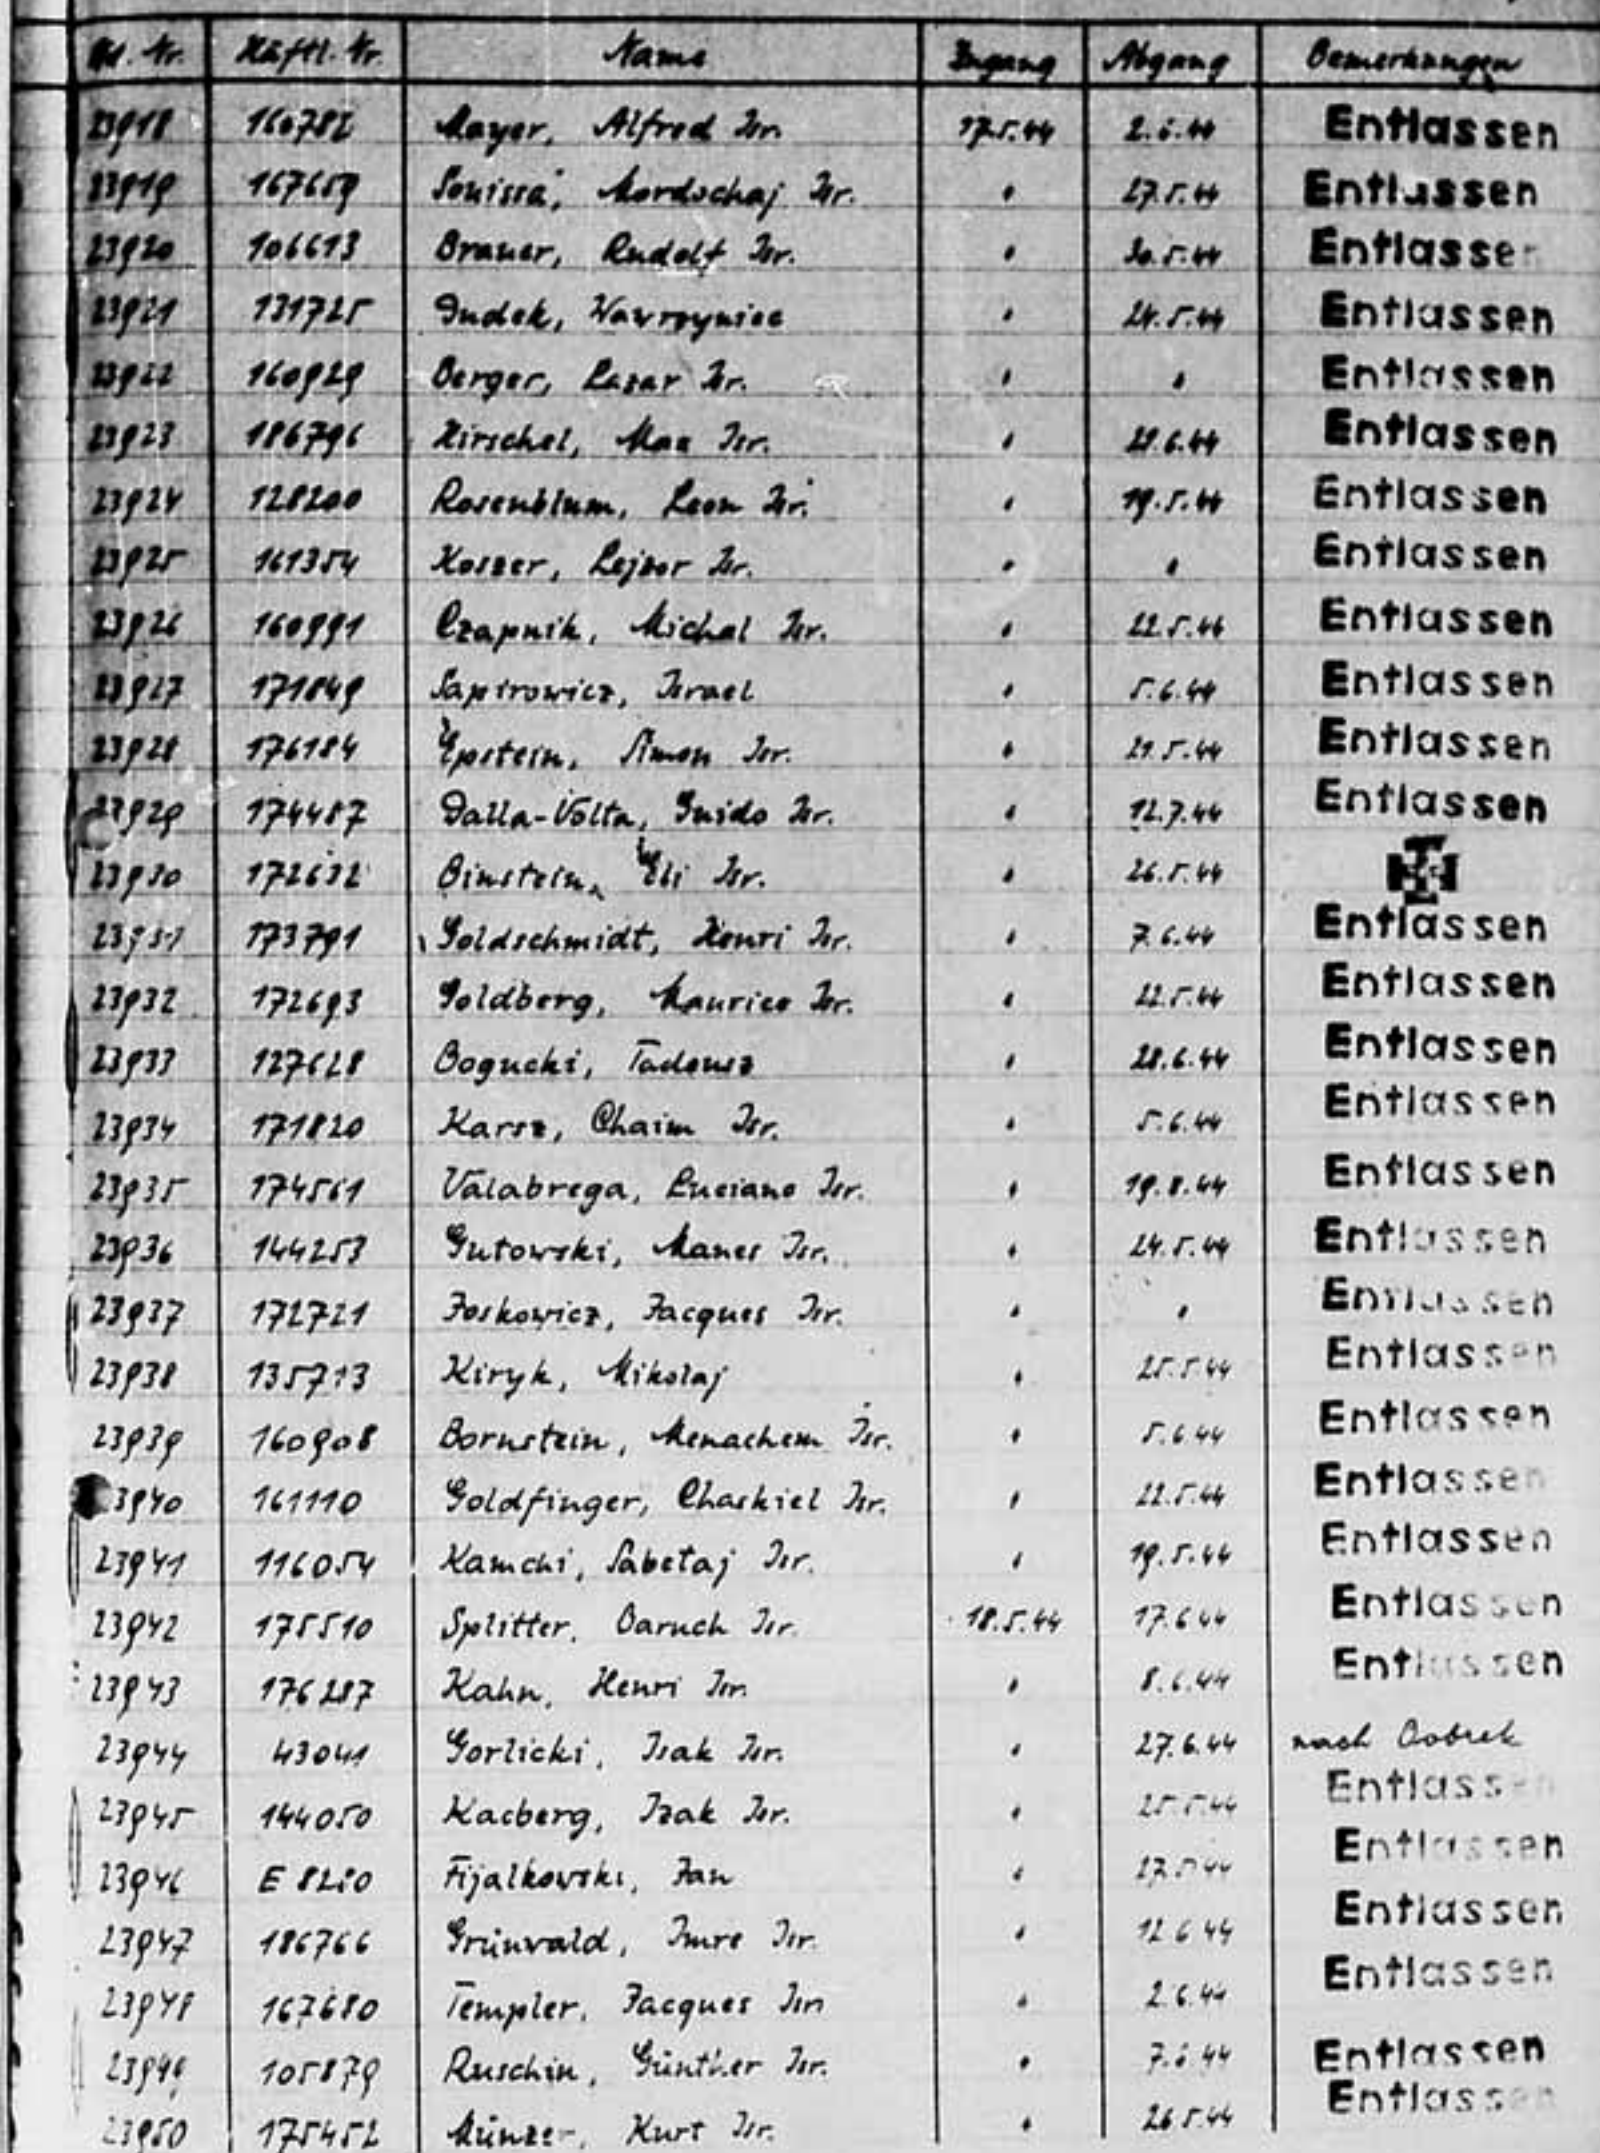 Lfd. Nr. Häftl. Nr. Name Zugang Abgang Bemerkungen
23918 160782 Mayer, Alfred Isr. 17.5.44 2.6.44 Entlassen
23919 167659 Souissa, Mordschaj Isr. " 27.5.44 Entlassen
23920 106613 Brauer, Rudolf Isr. " 30.5.44 Entlassen
23921 131725 Dudek, Wawrzyniec " 24.5.44 Entlassen
23922 160929 Berger, Lazar Isr. " " Entlassen
23923 186796 Hirschel, Max Isr. " 21.6.44 Entlassen
23924 128200 Rosenblum, Leon Isr. " 19.5.44 Entlassen
23925 161354 Koszer, Lejzor Isr. " " Entlassen
23926 160991 Czapnik, Michal Isr. " 22.5.44 Entlassen
23927 171849 Sapirowicz, Israel " 5.6.44 Entlassen
23928 176184 Epstein, Simon Isr. " 21.5.44 Entlassen
23929 174487 Dalla-Volta, Guido Isr. " 12.7.44 Entlassen
23930 172632 Binstein, Eli Isr. " 26.5.44
23931 173791 Goldschmidt, Henri Isr. " 7.6.44 Entlassen
23932 172693 Goldberg, Maurice Isr. " 22.5.44 Entlassen
23933 127628 Bogucki, Tadeusz " 28.6.44 Entlassen
23934 171820 Karsz, Chaim Isr. " 5.6.44 Entlassen
23935 174561 Valabrega, Luciano Isr. " 19.8.44 Entlassen
23936 144253 Gutowski, Manes Isr. " 24.5.44 Entlassen
23937 172721 Joskowicz, Jacques Isr. " " Entlassen
23938 135713 Kiryk, Mikolaj " 25.5.44 Entlassen
23939 160908 Bornstein, Menachem Isr. " 5.6.44 Entlassen
23940 161110 Goldfinger, Chaskiel Isr. " 22.5.44 Entlassen
23941 116054 Kamchi, Sabetaj Isr. " 19.5.44 Entlassen
23942 175510 Splitter, Baruch Isr. 18.5.44 17.6.44 Entlassen
23943 176287 Kahn, Henri Isr. " 8.6.44 Entlassen
23944 43041 Gorlicki, Isak Isr. " 27.6.44 nach Bobrek
23945 144050 Kacberg, Izak Isr. " 25.5.44 Entlassen
23946 E Fijalkowski, Jan " 27.5.44 Entlassen
23947 186766 Grünvald, Imre Isr. " 12.6.44 Entlassen
23948 167680 Templer, Jacques Isr. " 2.6.44 Entlassen
23949 105879 Ruschin, Günther Isr. " 7.6.44 Entlassen
23950 175452 Münzer, Kurt Isr. " 26.5.44 Entlassen